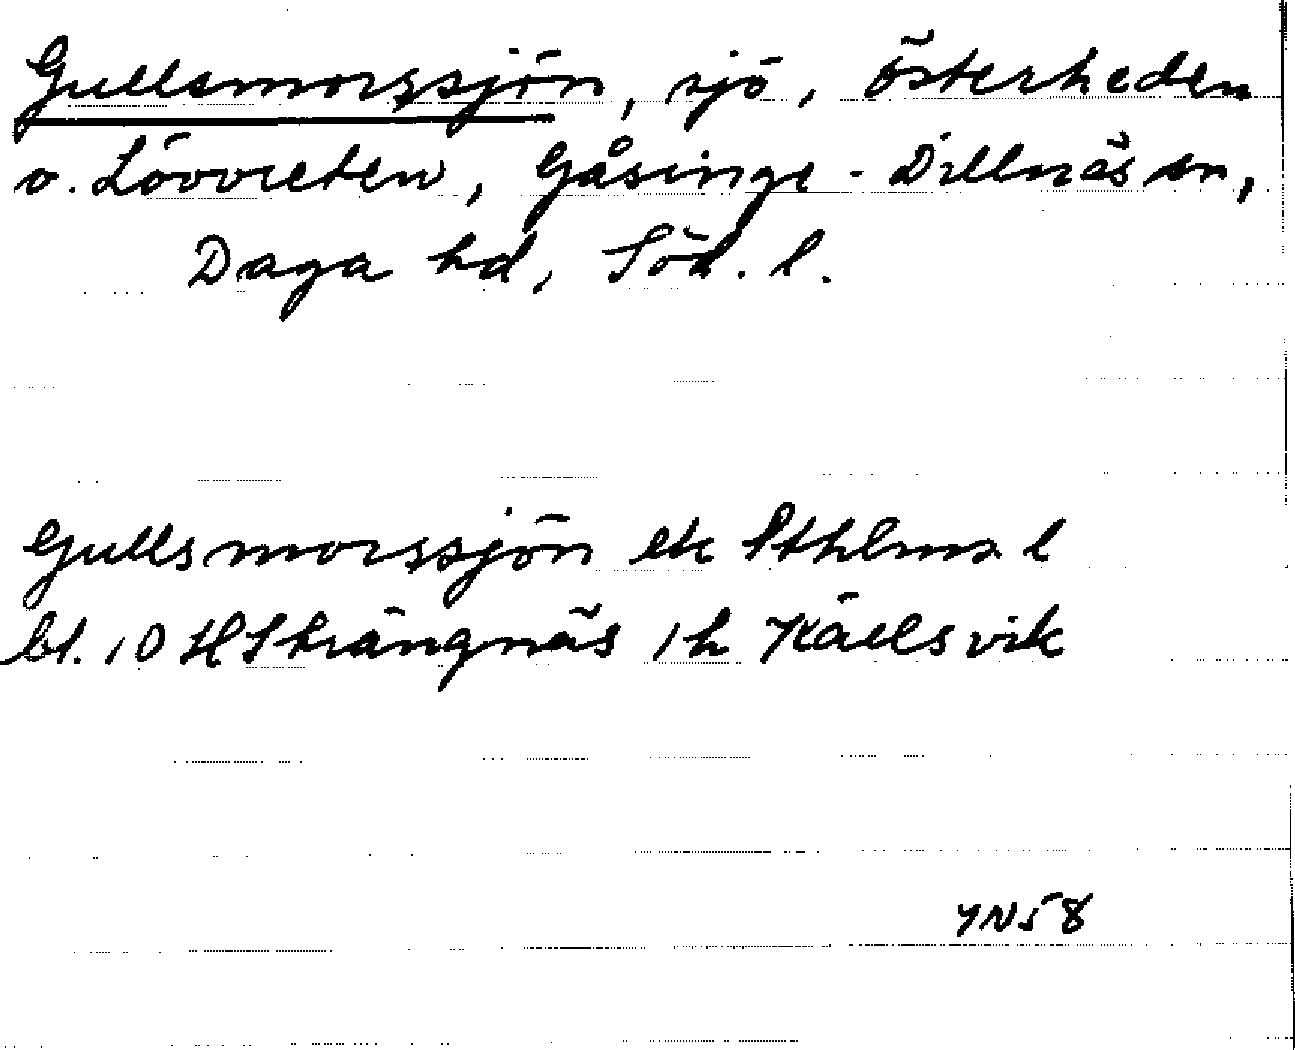 Gullsmorssjön, sjö, Österheden
o. Lövvreten, Gåsinge-Dillnäs sn,
Daga hd, Söd. l.
Gullsmorssjön ek Sthlms l
bl. 10 H Strängnäs 1 h Källsvik
YN58